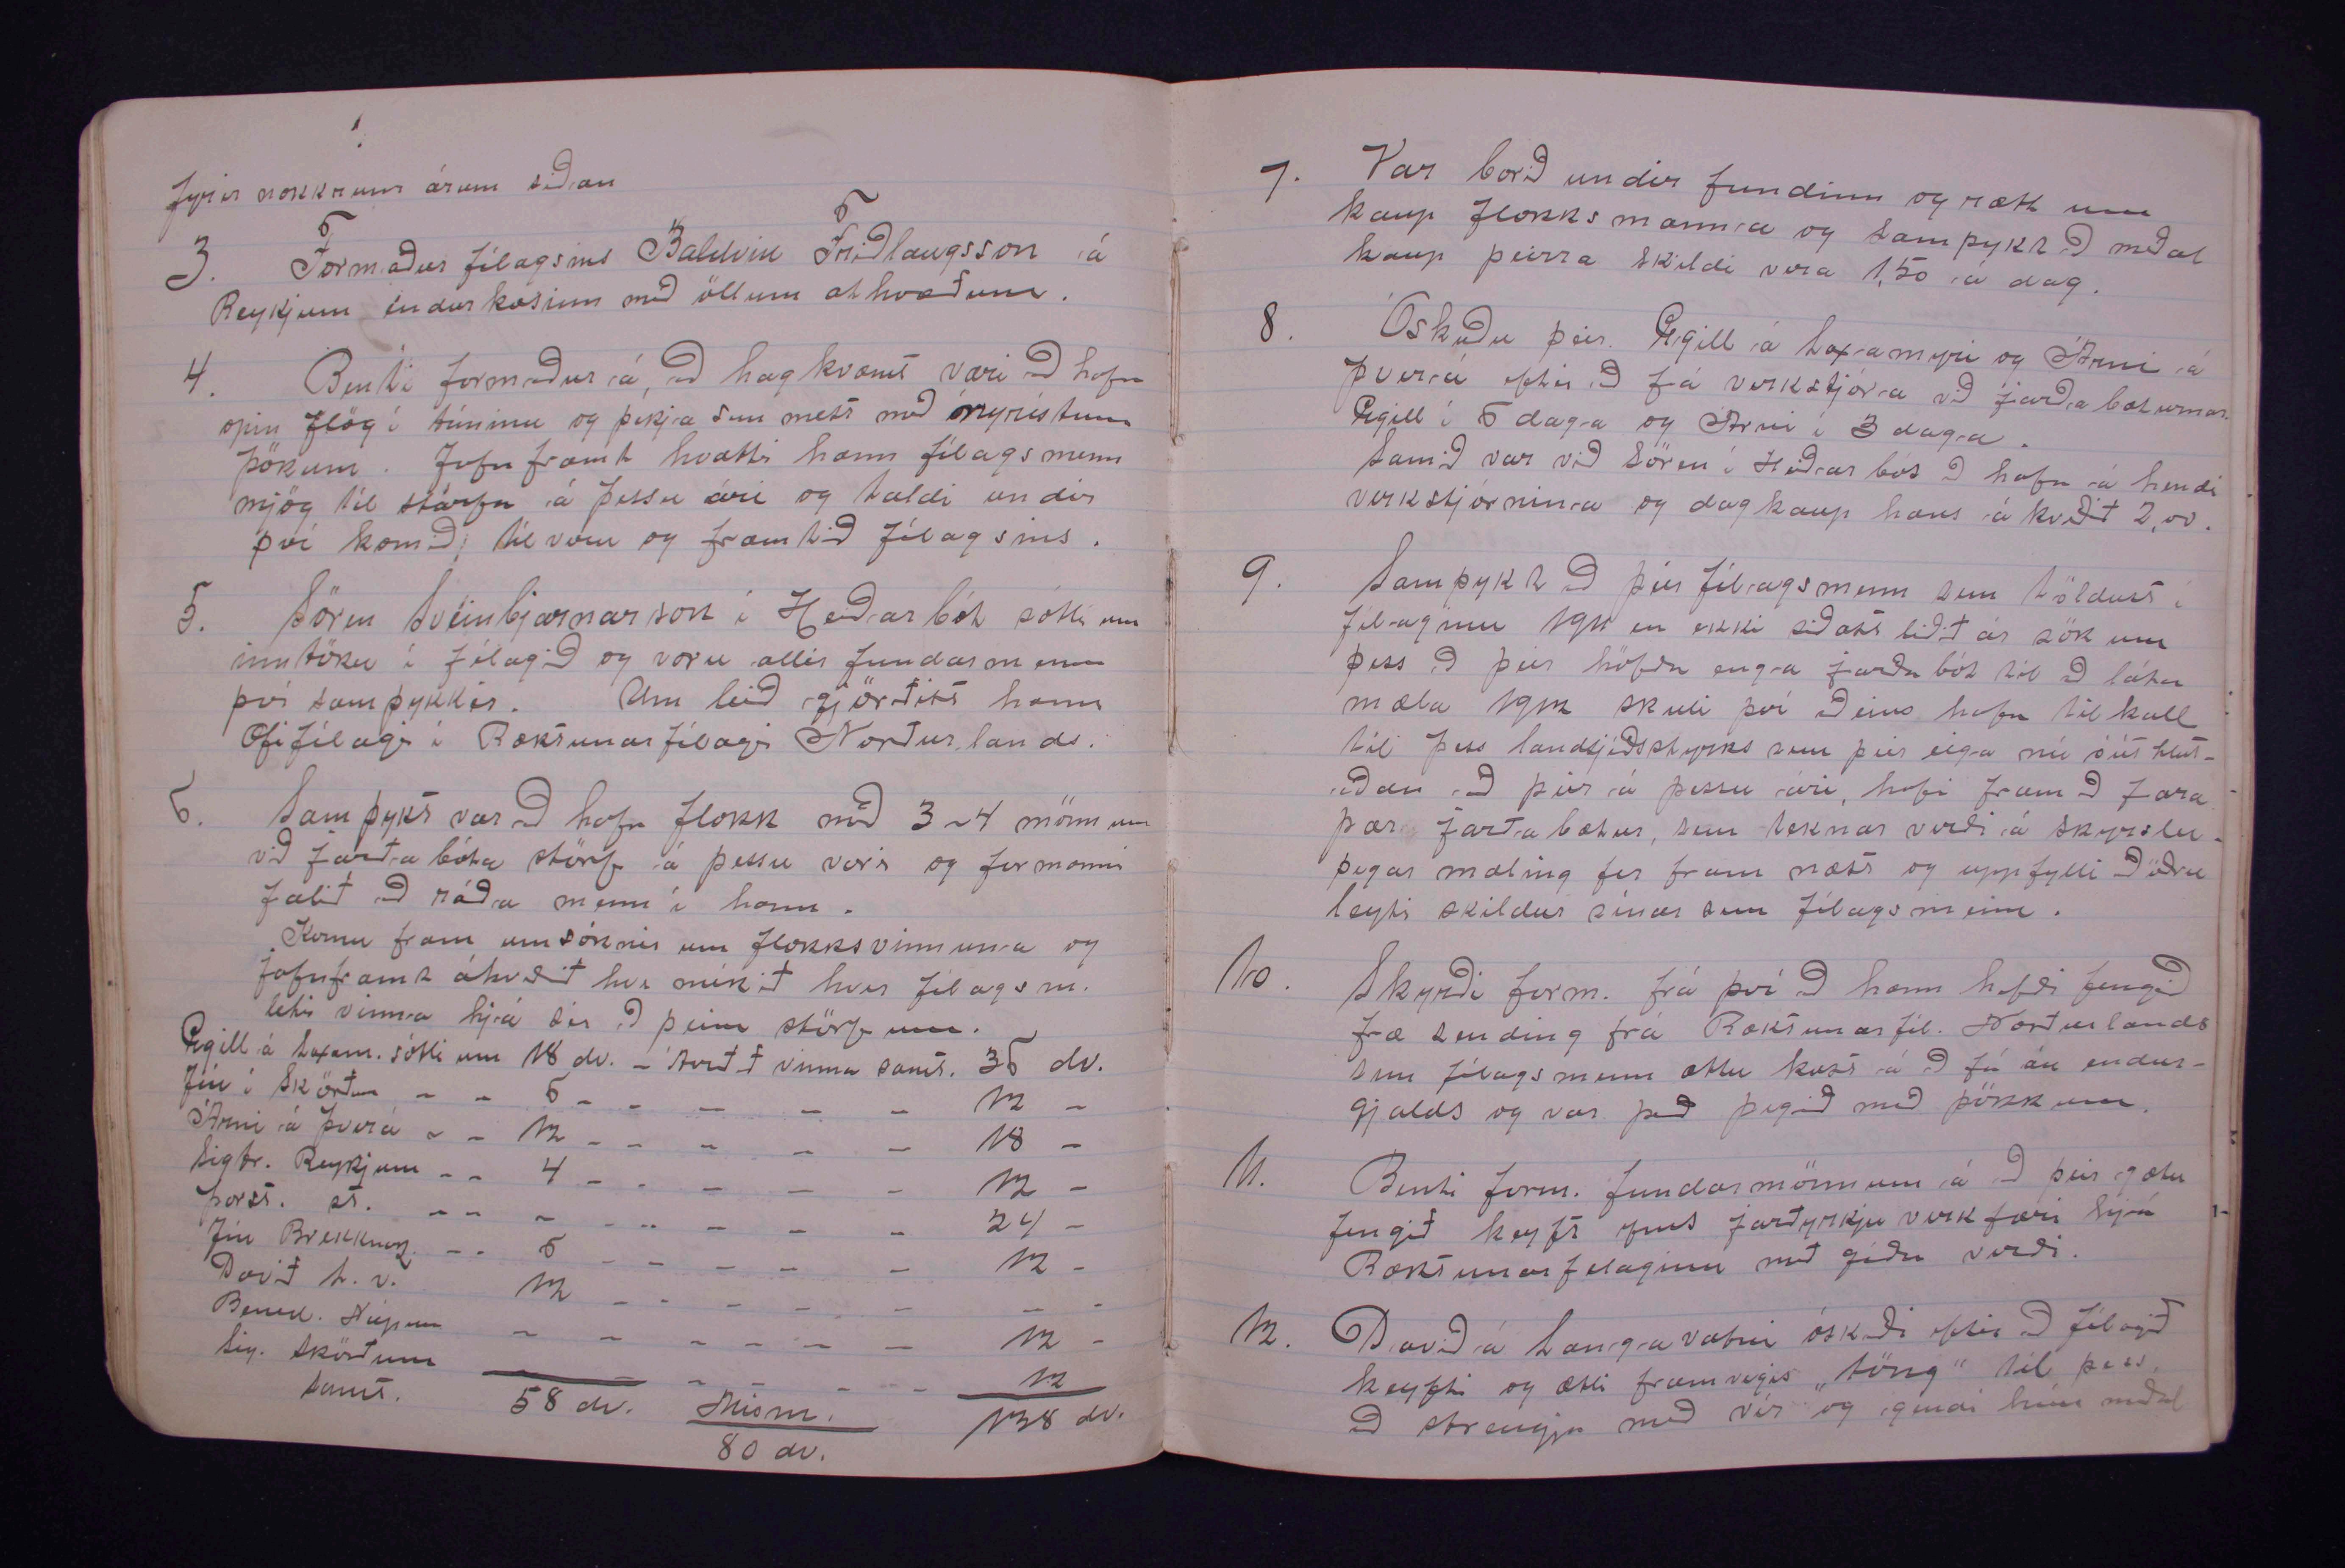 fyrir nokkrum árum síðan
3. Formaður félagsins Baldvin Friðlaugsson á
Reykjum endurkosinn með öllum athvæðum.
4. Benti formaður á, að hagkvæmt væri að hafa
opin flög í túninu og þekja sem mest með óxyristum
þökum. Jafnframt hvatti hann félagsmenn
mjög til starfa á þessu ári og taldi undir
því komið, tilveru og framtíð félagsins.
5. Sören Sveinbjarnarson í Heiðarbót sótti um
inntöku í félagið og voru allir fundarmenn
því samþykkir. Um leið gjörðist hann
Æfifélagi í Ræktunarfélagi Norðurlands.
6. Samþykt var að hafa flokk með 3-4 mönnum
við jarðabóta störf á þessu vori og formanni
falið að ráða menn í hann.
Komu fram umsóknir um flokksvinnuna og
jafnframt ákveðið hve mikið hver félagsm.
léti vinna hjá sér að þeim störfum.
Egill á Laxam. sótti um 18 dv. - Áætl. vinna samt. 36 dv.
Jón í Skörðum - - 6 - - - - - 12 -
Árni á Þverá - - 12 - - - - - 18 -
Sigtr. Reykjum - - 4 - - - - - 12 -
Þorst. st. - - - - - - - - 24 -
Jón Brekknak. - - 6 - - - - 12 -
Davíð L. v. 12 - - - - - -
Bened. Núpum - - - - - - 12 -
Sig. Skörðum - - - - - 12
Samt. 58 dv. Mism. 138 dv.
80 dv.
7. Var borið undir fundinn og rætt um
kaup flokksmanna og samþykt að meðal
kaup þeirra skildi vera 1,50 á dag.
8. Óskuðu þeir. Egill á Laxamyri og Árni á
Þverá eftir að fá verkstjóra við jarðabæturnar.
Egill í 6 daga og Árni í 3 daga.
Samið var við Sören í Heiðarbót að hafa á hendi
verkstjórnina og dagkaup hans ákveðið 2,00.
9. Samþykt að þeir félagsmenn sem töldust í
félaginu 1911 en ekki síðast liðið ár sökum
þess að þeir höfðu enga jarðabót til að láta
mæla 1912 skuli því aðeins hafa tilkall
til þess landsjóðsstyrks sem þeir eiga nú óúthlut-
aðan að þeir á þessu ári, hafi framað fara
þær jarðabætur, sem teknar verði á skyrslu
þegar mæling fer fram næst og uppfylli að öðru
leyti skildur sínar sem félagsmenn.
10. Skyrði form. frá því að hann hafði fengið
fræ sending frá Ræktunarfél. Norðurlands
sem félagsmenn ættu kost á að fá án endur-
gjalds og var það þegið með þökkum.
11. Benti form. fundarmönnum á að þeir gætu
fengið keyft yms jarðyrkju verkfæri hjá
Ræktunarfelaginu með góðu verði.
12. Davíð á Langavatni óskaði eftir að félagið
keypti og ætti framvegis „töng“ til þess,
að strengja með vír og gengi hún meðal